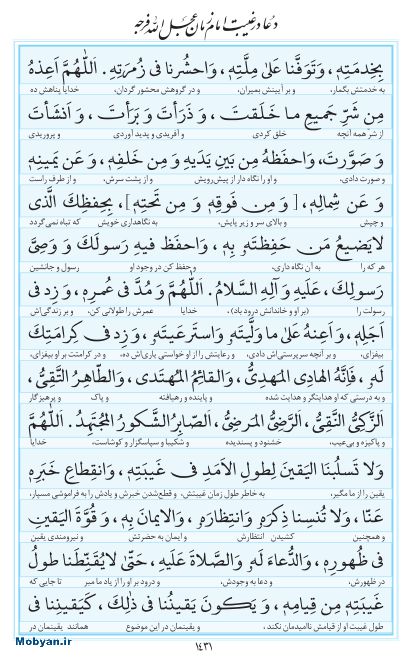 دعا در غیبت امام زمان عجل الله فرجه
بِخِدمَتِهِ، وَتَوَفَّنا عَلیٰ مِلَّتِهِ، وَاحشُرنا فی زُمرَتِهِ. اَللّٰهُمَّ اَعِذهُ
به خدمتش بگمار، و بر آیینش بمیران، و در گروهش محشور گردان، خدایا پناهش ده
مِن شَرِّ جَمیعِ ما خَلَقتَ، وَ ذَرَأتَ وَ بَرَأتَ، وَ اَنشَأتَ
از شر همه آنچه خلق کردی و آفریدی و پدید آوردی و پروریدی
وَ صَوَّرتَ، وَاحفَظهُ مِن بَینِ یَدَیهِ وَ مِن خَلفِهِ، وَ عَن یَمینِهِ
و صورت دادی، و او را نگاه دار از پیش‌رویش و از پشت سرش، و از طرف راست
وَ عَن شِمالِهِ، [ وَ مِن فَوقِهِ وَ مِن تَحتِهِ]، بِحِفظِکَ الَّذی
و چپش و بالای سر و زیر پایش، به نگهداری خویش که تباه نمی‌گردد
لایَضیعُ مَن حَفِظتَهُ بِهِ، وَاحفَظ فیهِ رَسولَکَ وَ وَصِیَّ
هر که را به آن نگاه داری، و حفظ کن در وجود او رسول و جانشین
رَسولِکَ، عَلَیهِ وَ آلِهِ السَّلامُ. اَللّٰهُمَّ وَ مُدَّ فی عُمرِهِ، وَ زِد فی
رسولت را (بر او و خاندانش درود باد)، خدایا عمرش را طولانی کن، و بر زندگی‌اش
اَجَلِهِ، وَ اَعِنهُ عَلیٰ ما وَلَّیتَهُ وَاستَرعَیتَهُ، وَ زِد فی کَرامَتِکَ
بیفزای، و بر آنچه سرپرستی‌اش دادی، و رعایتش را از او خواستی یاری‌اش ده، و در کرامتت بر او بیفزای،
لَهُ، فَاِنَّهُ الهادِی المَهدِیُّ، وَالقائِمُ المُهتَدی، وَالطّاهِرُ التَّقِیُّ،
و به درستی که او هدایتگر و هدایت شده و پاینده و رهیافته و پاک و پرهیزگار
اَلزَّکِیُّ النَّقِیُّ، اَلرَّضِیُّ المَرضِیُّ، اَلصّابِرُ الشَّکورُ المُجتَهِدُ. اَللّٰهُمَّ
و پاکیزه و بی‌عیب، خشنود و پسندیده و شکیبا و سپاسگزار و کوشاست، خدایا
وَلا تَسلُبنَا الیَقینَ لِطولِ الاَمَدِ فی غَیبَتِهِ، وَانقِطاعِ خَبَرِهِ
یقین را از ما مگیر، به خاطر طول زمان غیبتش، و قطع‌شدن خبرش و یادش را به فراموشی مسپار،
عَنّا، وَلا تُنسِنا ذِکرَهُ وَانتِظارَهُ، وَالایمانَ بِهِ، وَ قُوَّةَ الیَقینِ
و همچنین کشیدن انتظارش و ایمان به حضرتش و نیرومندی یقین
فی ظُهورِهِ، وَالدُّعاءَ لَهُ وَالصَّلاةَ عَلَیهِ، حَتّیٰ لایُقَنِّطَنا طولُ
در ظهورش، و دعا به وجودش، و درود بر او را از یاد ما مبر تا جایی که
غَیبَتِهِ مِن قِیامِهِ، وَ یَکونَ یَقینُنا فی ذٰلِکَ، کَیَقینِنا فی
طول غیبت او از قیامش ناامیدمان نکند، و یقینمان در این موضوع همانند یقینمان در
Mobyan.ir
۱۴۳۱